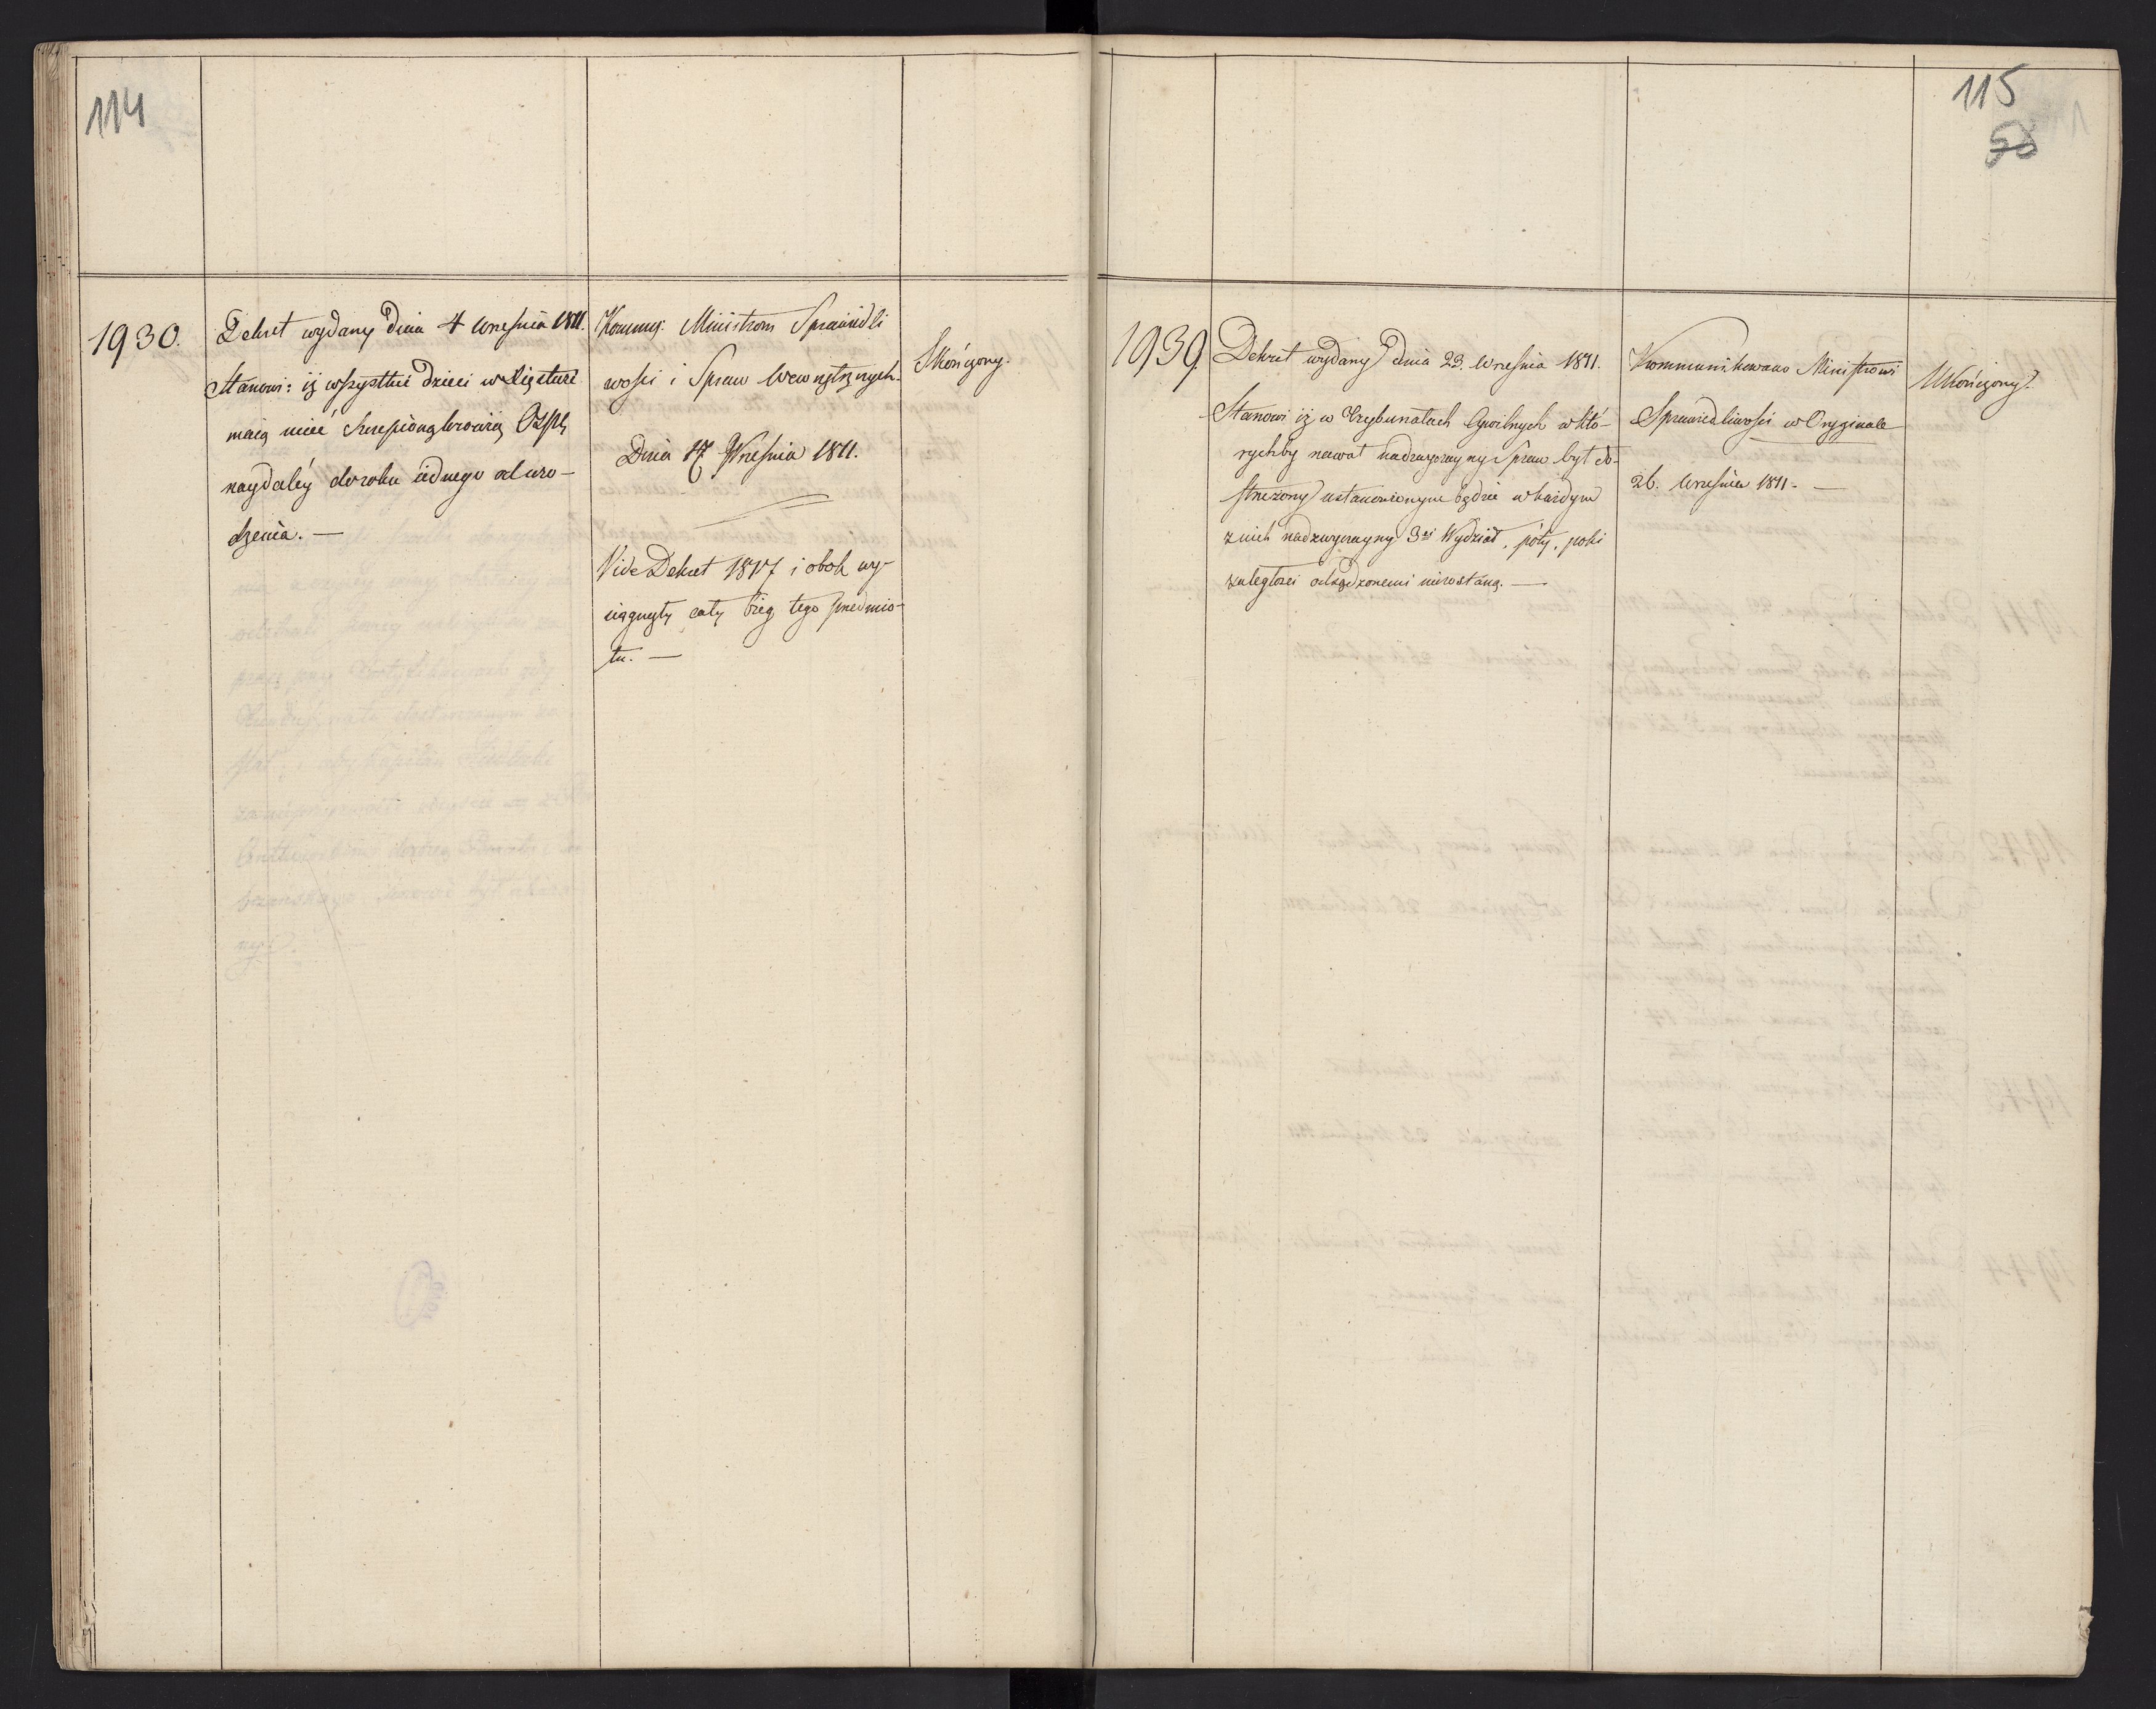 114
1930.
Dekret wydany dnia 4 Września 1811.
Stanowi: iż wszystkie dzieci w Xięstwie
maią mieć szczepioną krowią Ospę
naydaléy do roku iednego od uro-
dzenia. —
Kommu: Ministrom Sprawiedli
wości i Spraw Wewnętrznych.
Dnia 17 Września 1811.
Vide Dekret 1817 i obok wy-
ciągnięty cały bieg tego przedmio-
tu. —
Skończony.
115
58
1939.
Dekret wydany dnia 23. Września 1811.
Stanowi iż w Trybunałach Cywilnych w któ-
rychby nawał nadzwyczayny Spraw był do-
strzeżony ustanowionym będzie w każdym
z nich nadzwyczayny 3ci Wydział, póty, poki
zaległości osądzonemi niezostaną. —
Kommunikowano Ministrowi
Sprawiedliwości w Oryginale
26. Września 1811. —
Ukończony.